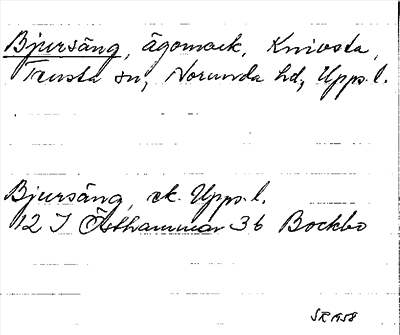 Bjursäng, ägomark, Knivsta,
Tensta sn, Norunda hd, Upps. l.
Bjursäng, ek. Upps. l.
12 I Östhammar 3b Bockbo
SR 1958